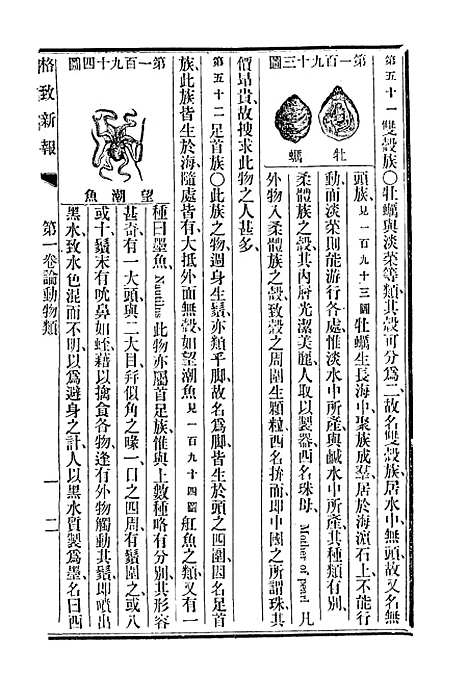 第五十一雙殼族〇牡蠣與淡菜等類其殼可分爲二故名雙殼族居水中無頭故又名無
第一百九十三圖
牡蠣
頭族、見一百九十三圖牡蠣生長海中聚族成羣居於海濵石上不能行
動而淡菜則能游行各處惟淡水中所產與鹹水中所產其種類有別
柔體族之殼其內層光潔美麗人取以製器西名珠母、Mother of pearl凡
外物入柔體族之殼致殼之周圍生顆粒西名拚而即中國之所謂珠其
價昂貴故搜求此物之人甚多、
第五十二足首族〇此族之物週身生鬚亦類乎脚故名爲脚皆生於頭之四圍因名足首
族此族皆生於海隨處皆有大抵外面無殼如望潮魚見一百九十四圖魟魚之類又有一
第一百九十四圖
望潮魚
種曰墨魚、Nautilus此物亦屬首足族惟與上數種略有分別其形容
甚奇有一大頭與二大目幷似角之喙一口之四周有鬚圍之或八
或十鬚末有吮鼻如蛭藉以擒食各物逢有外物觸動其鬚即噴出
黑水致水色混而不明以爲避身之計人以黑水質製爲墨名曰西
格致新報
第一卷論動物類
一二